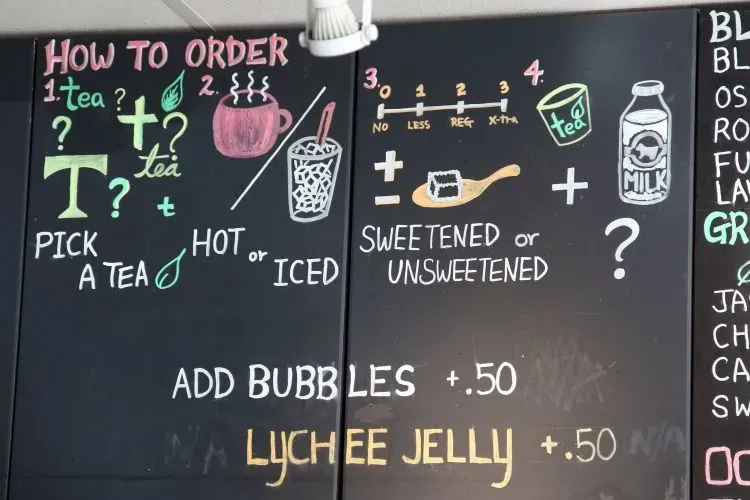 HOW TO ORDER
1. tea ? + ? tea T ? t
PICK
A TEA
2.
HOT or ICED
3.
0 1 2 3
NO LESS REG X-tra
+
-
SWEETENED or
UNSWEETENED
4.
tea + MILK
?
ADD BUBBLES +.50
N/A
LYCHEE JELLY +.50
N/A
N/A
BL
BL
OS
RO
FU
LA
GR
JA
CH
CA
SW